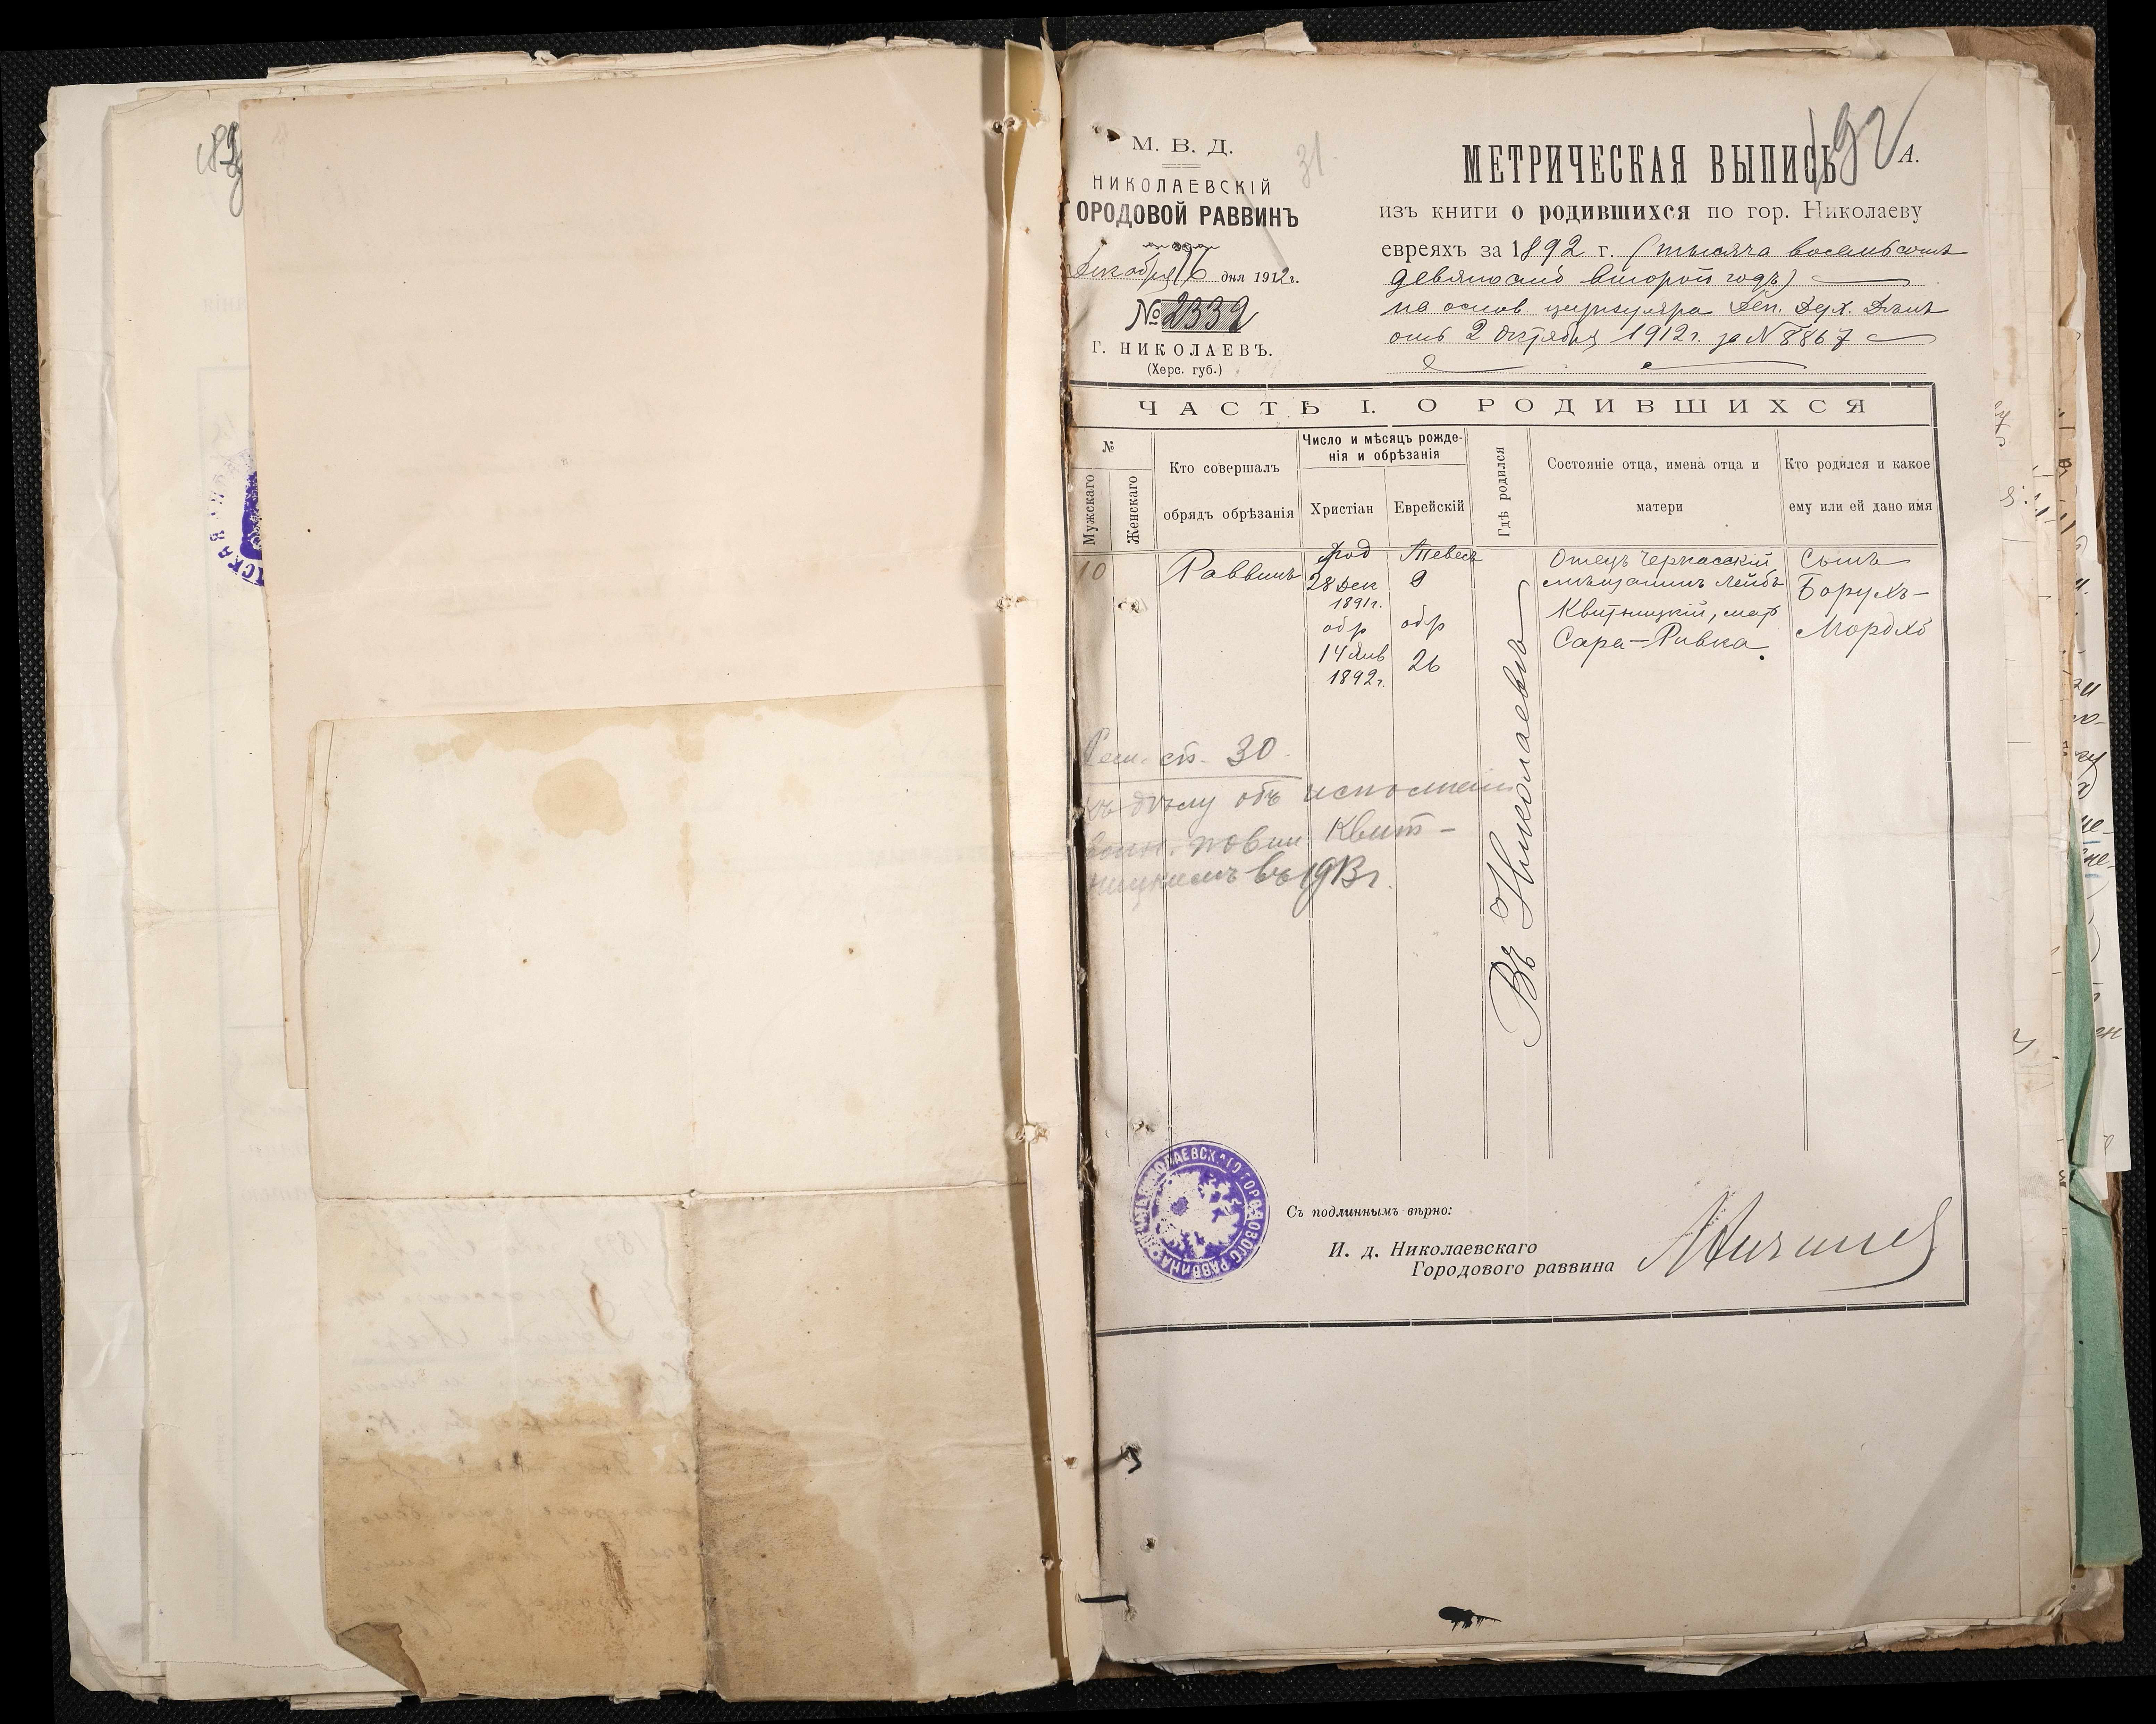 192
31.
М. В. Д.
НИКОЛАЕВСКІЙ
ОРОДОВОЙ РАВВИНЪ
Декабря 16 дня 1912 г.
№ 2339
Г. НИКОЛАЕВЪ.
(Херс. губ.)
МЕТРИЧЕСКАЯ ВЫПИСЬ
А.
изъ книги о родившихся по гор. Николаеву
евреяхъ за 1892 г. (тысяча восемьсотъ
девяносто второй годъ)
на основ циркуляра Деп. Дух. Дѣлъ
отъ 2 Октября 1912 г. за № 8867
ЧАСТЬ I. О РОДИВШИХСЯ
№
Мужскаго
Женскаго
Кто совершалъ
обрядъ обрѣзанія
Число и мѣсяцъ рожде-
нія и обрѣзанія
Христіан
Еврейскій
Гдѣ родился
Состояніе отца, имена отца и
матери
Кто родился и какое
ему или ей дано имя
10
Раввинъ
род
28 Дек
1891 г.
обр
14 Янв
1892 г.
Тевесъ
9
обр
26
Въ Николаевѣ
Отецъ Черкасскій
мѣщанинъ Лейбъ
Квитницкій, мать
Сара-Ривка.
Сынъ
Борухъ-
Мордхо
ст. 30.
къ дѣлу объ исполненіи
воин. повин. Квит-
ницкимъ въ 1913 г.
НИКОЛАЕВСКАГО ГОРОДОВОГО РАВВИНА
Съ подлиннымъ вѣрно:
И. д. Николаевскаго
Городового раввина